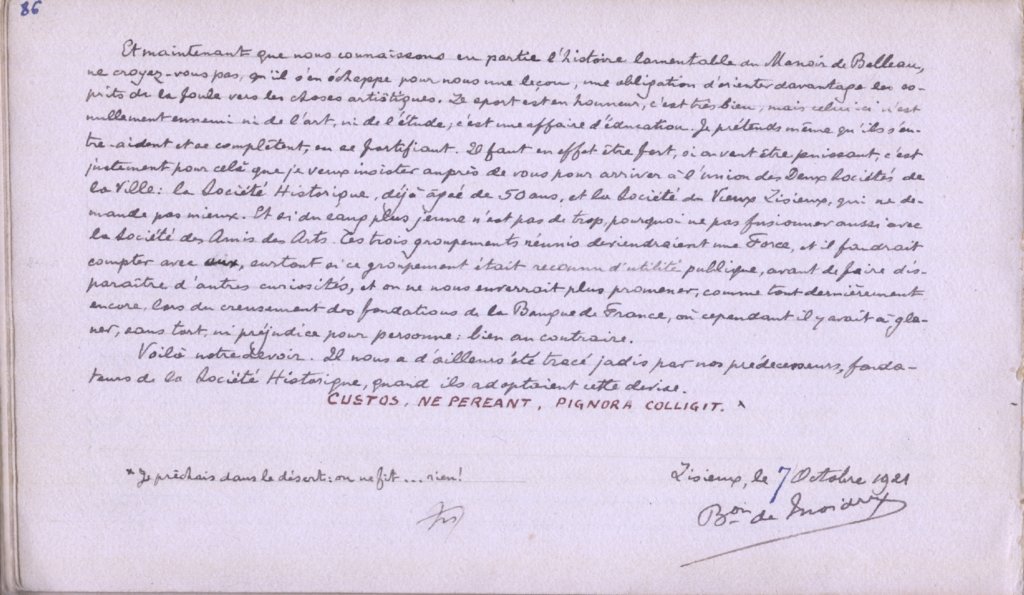 86
Et maintenant que nous connaissons en partie l'histoire lamentable du Manoir de Belleau,
ne croyez-vous pas, qu'il s'en échappe pour nous une leçon, une obligation d'orienter davantage les es-
prits de la foule vers les choses artistiques. Le sport est en honneur, c'est très bien, mais celui-ci n'est
nullement ennemi ni de l'art, ni de l'étude; c'est une affaire d'éducation. Je prétends même qu'ils s'en-
tre-aident et se complètent, en se fortifiant. Il faut en effet être fort, si on veut être puissant, c'est
justement pour celà que je veux insister auprès de vous pour arriver à l'union des Deux Sociétés de
la Ville: la Société Historique, déjà âgée de 50 ans, et la Société du Vieux Lisieux, qui ne de-
mande pas mieux. Et si du sang plus jeune n'est pas de trop, pourquoi ne pas fusionner aussi avec
la Société des Amis des Arts. Ces trois groupements réunis deviendraient une Force, et il faudrait
compter avec eux, surtout si ce groupement était reconnu d'utilité publique, avant de faire dis-
paraître d'autres curiosités, et on ne nous enverrait plus promener, comme tout dernièrement
encore, lors du creusement des fondations de la Banque de France, où cependant il y avait à gla-
ner, sans tort, ni préjudice pour personne: bien au contraire.
Voilà notre devoir. Il nous a d'ailleurs été tracé jadis par nos prédécesseurs, fonda-
teurs de la Société Historique, quand ils adoptaient cette devise.
CUSTOS, NE PEREANT, PIGNORA COLLIGIT. *
* Je prêchais dans le désert: on ne fit ... rien!
Lisieux, le 7 Octobre 1921
Bon de Moidrey